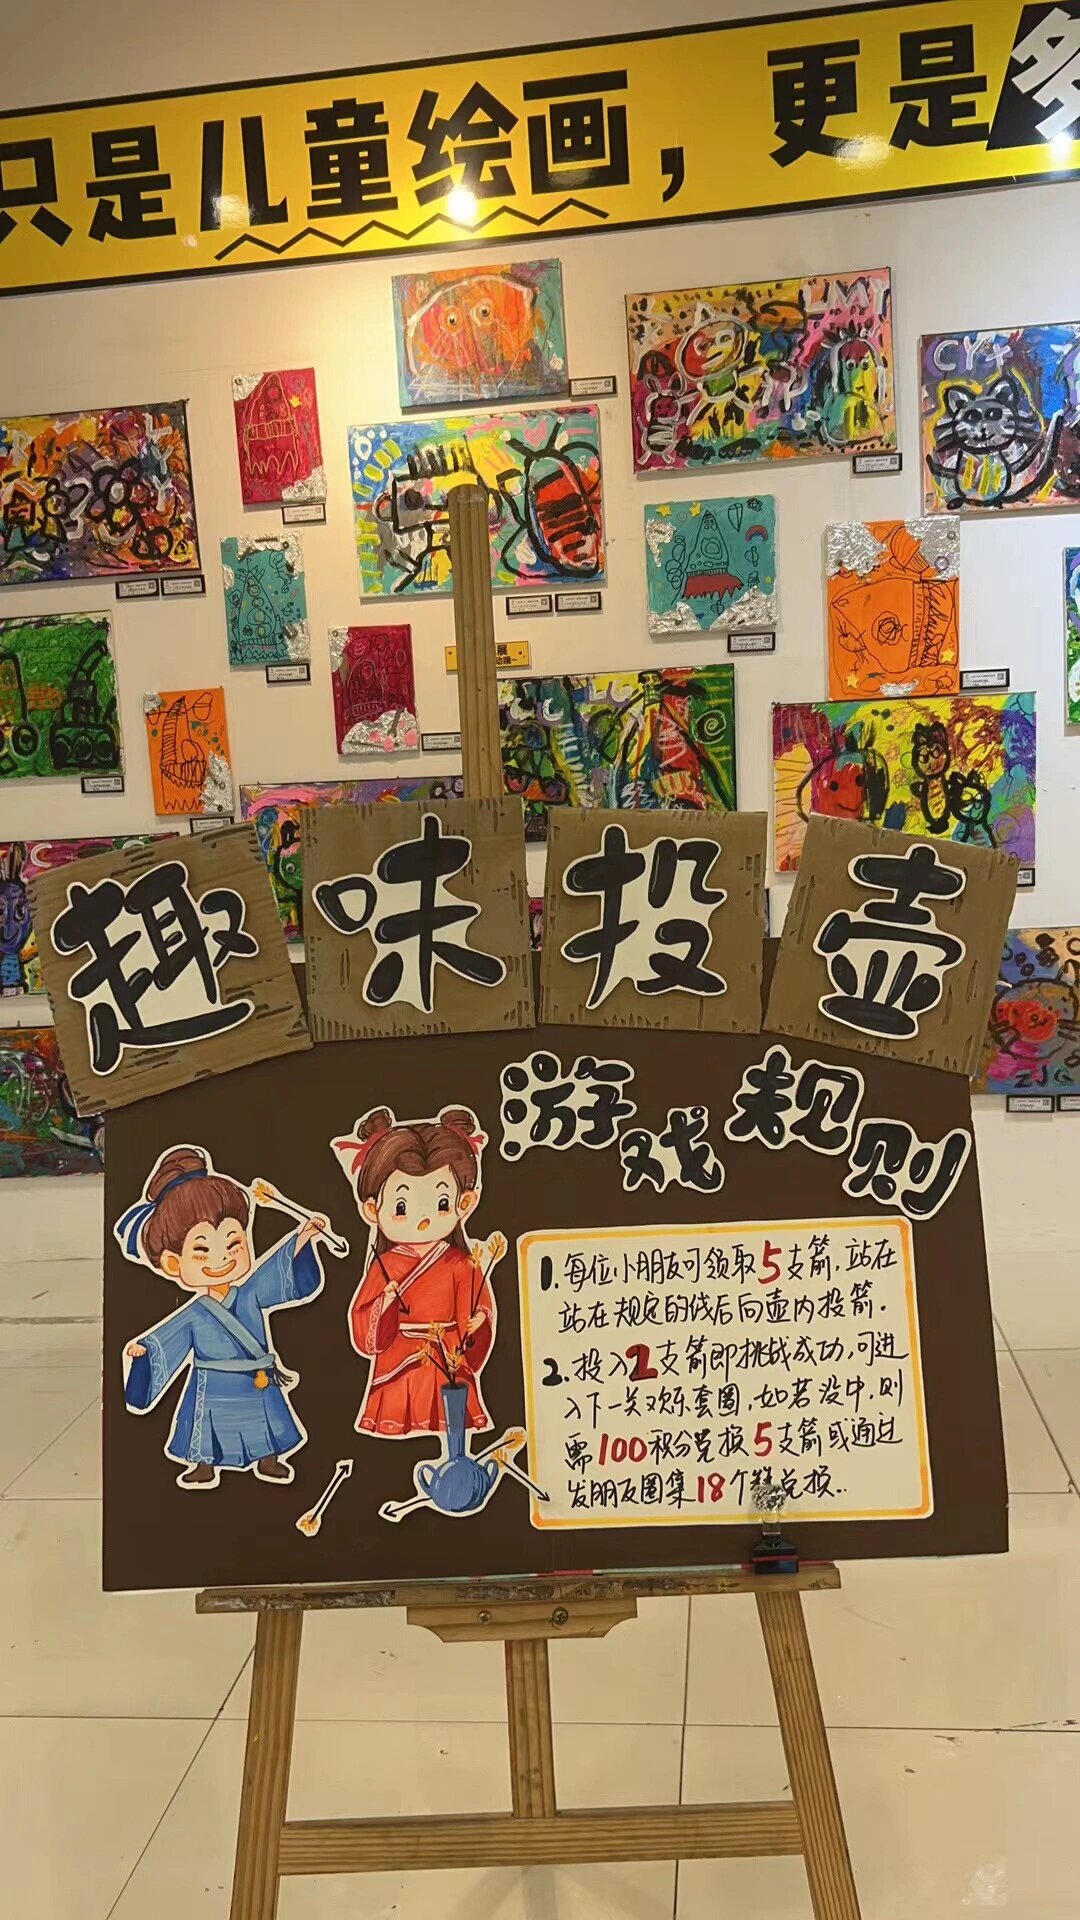 只是儿童绘画，更是多
LMY
CY+
展
动哦~
趣味投壶
游戏规则
1.每位小朋友可领取5支箭，站在
站在规定的线后向壶内投箭.
2.投入2支箭即挑战成功，可进
入下一关欢乐套圈，如若没中，则
需100积分兑换5支箭或通过
发朋友圈集18个赞兑换..
ZJQ